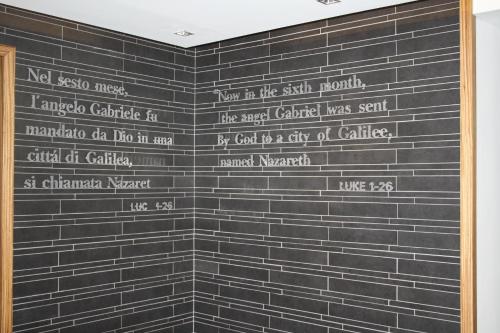 Nel sesto mese,
l'angelo Gabriele fu
mandato da Dio in una
cittá di Galilea,
si chiamata Nazaret
LUC 1-26
"Now in the sixth month,
the angel Gabriel was sent
By God to a city of Galilee,
named Nazareth
LUKE 1-26